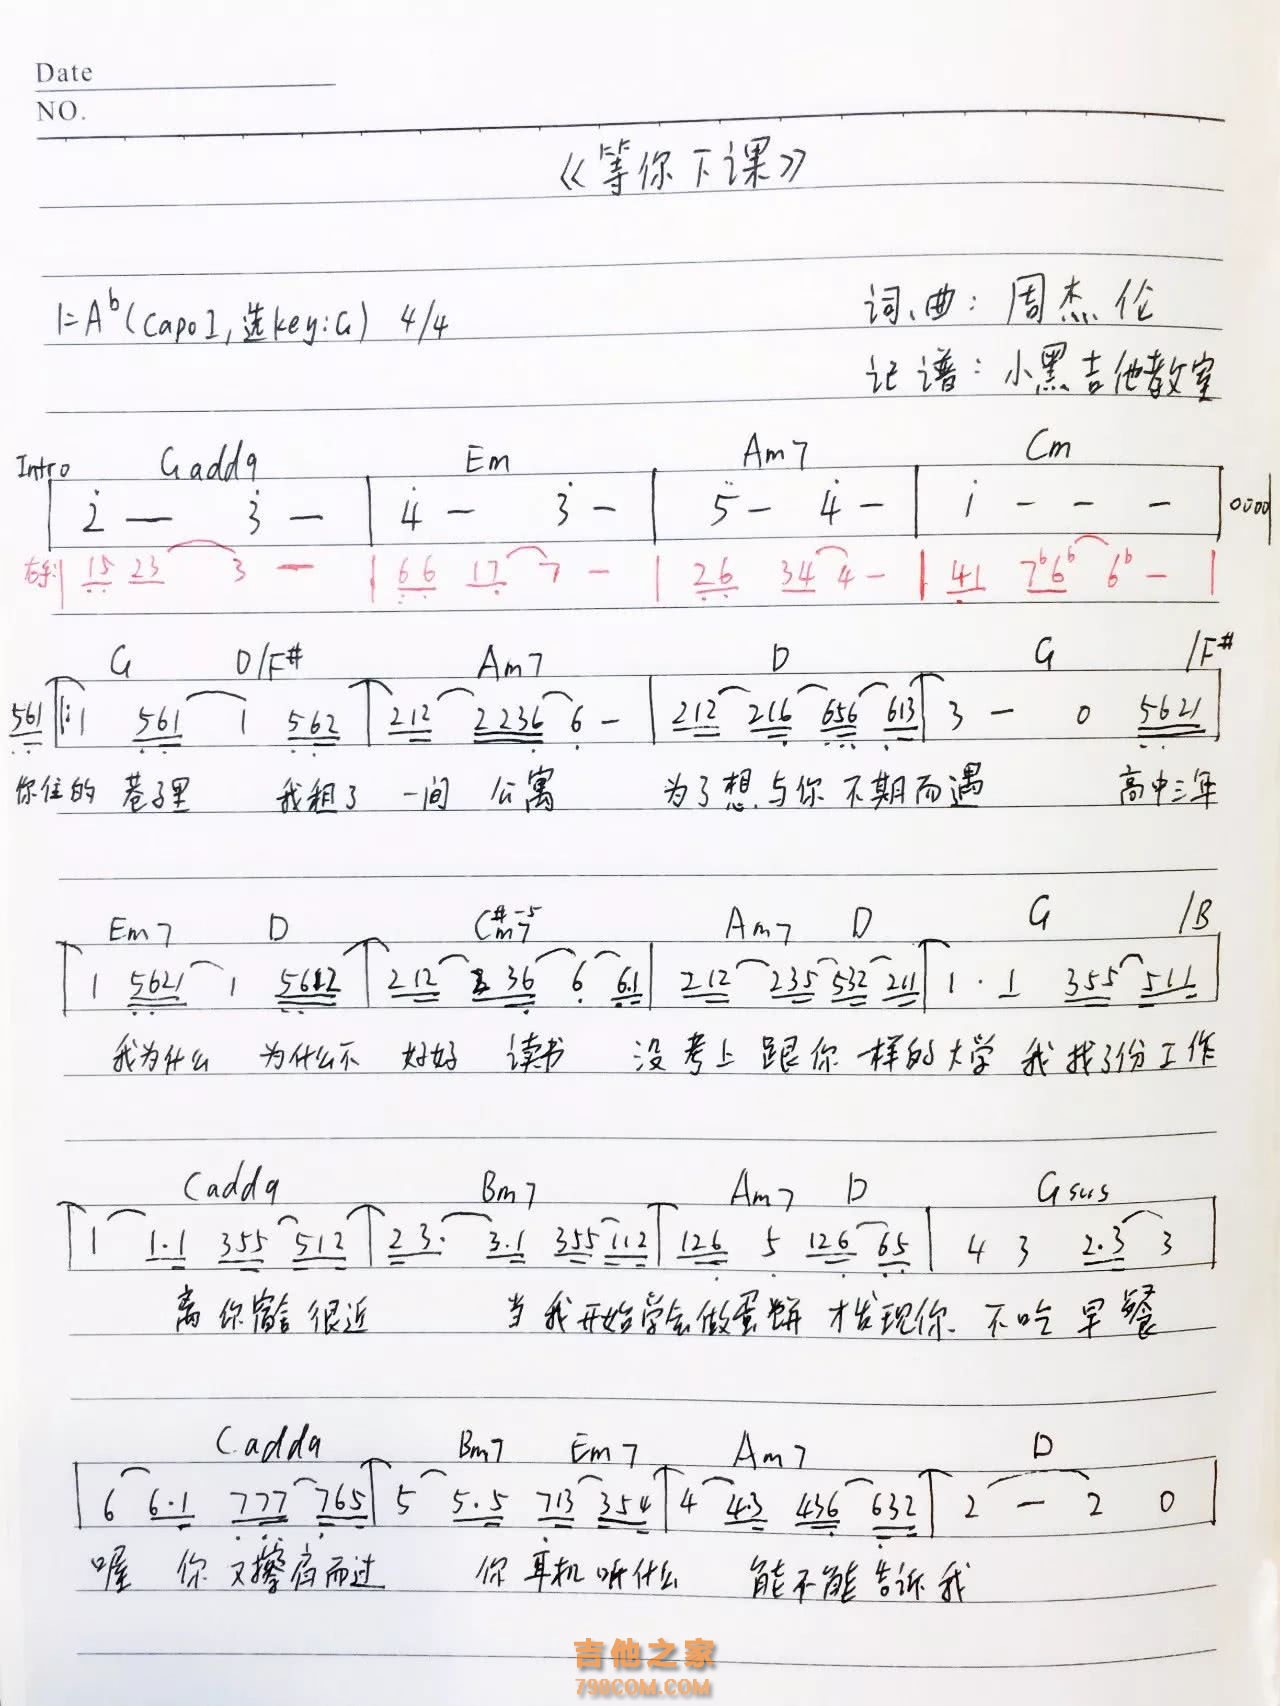 Date
NO.
《等你下课》
1=A♭(Capo 1,选key:G) 4/4
词、曲：周杰伦
记谱：小黑吉他教室
Intro Gadd9 Em Am7 Cm
| 2̇ — 3̇ — | 4̇ — 3̇ — | 5̇ — 4̇ — | 1̇ - - - | 0000 |
右手| 15 23 3 — | 66 17 7 — | 26 34 4 — | 41 7♭6♭ 6♭ — |
G D/F# Am7 D G /F#
561 |: 1 561 1 562 | 212 2236 6 — | 212 216 656 613 | 3 — 0 5621 |
你住的 巷子里 我租了 一间 公寓 为了想与你不期而遇 高中三年
Em7 D C#m7-5 Am7 D G /B
| 1 5621 1 5612 | 212 236 6 6.1 | 212 235 532 211 | 1 · 1 355 511 |
我为什么 为什么不 好好 读书 没考上 跟你一样的大学 我找了份工作
Cadd9 Bm7 Am7 D Gsus
| 1 1.1 355 512 | 23. 3.1 355 112 | 126 5 126 65 | 4 3 2.3 3 |
离你宿舍很近 当我开始学会做蛋饼 才发现你 不吃早餐
Cadd9 Bm7 Em7 Am7 D
| 6 6.1 777 765 | 5 5.5 713 354 | 4 4.3 436 632 | 2 — 2 0 |
喔 你又擦肩而过 你耳机听什么 能不能告诉我
吉他之家
798COM.COM